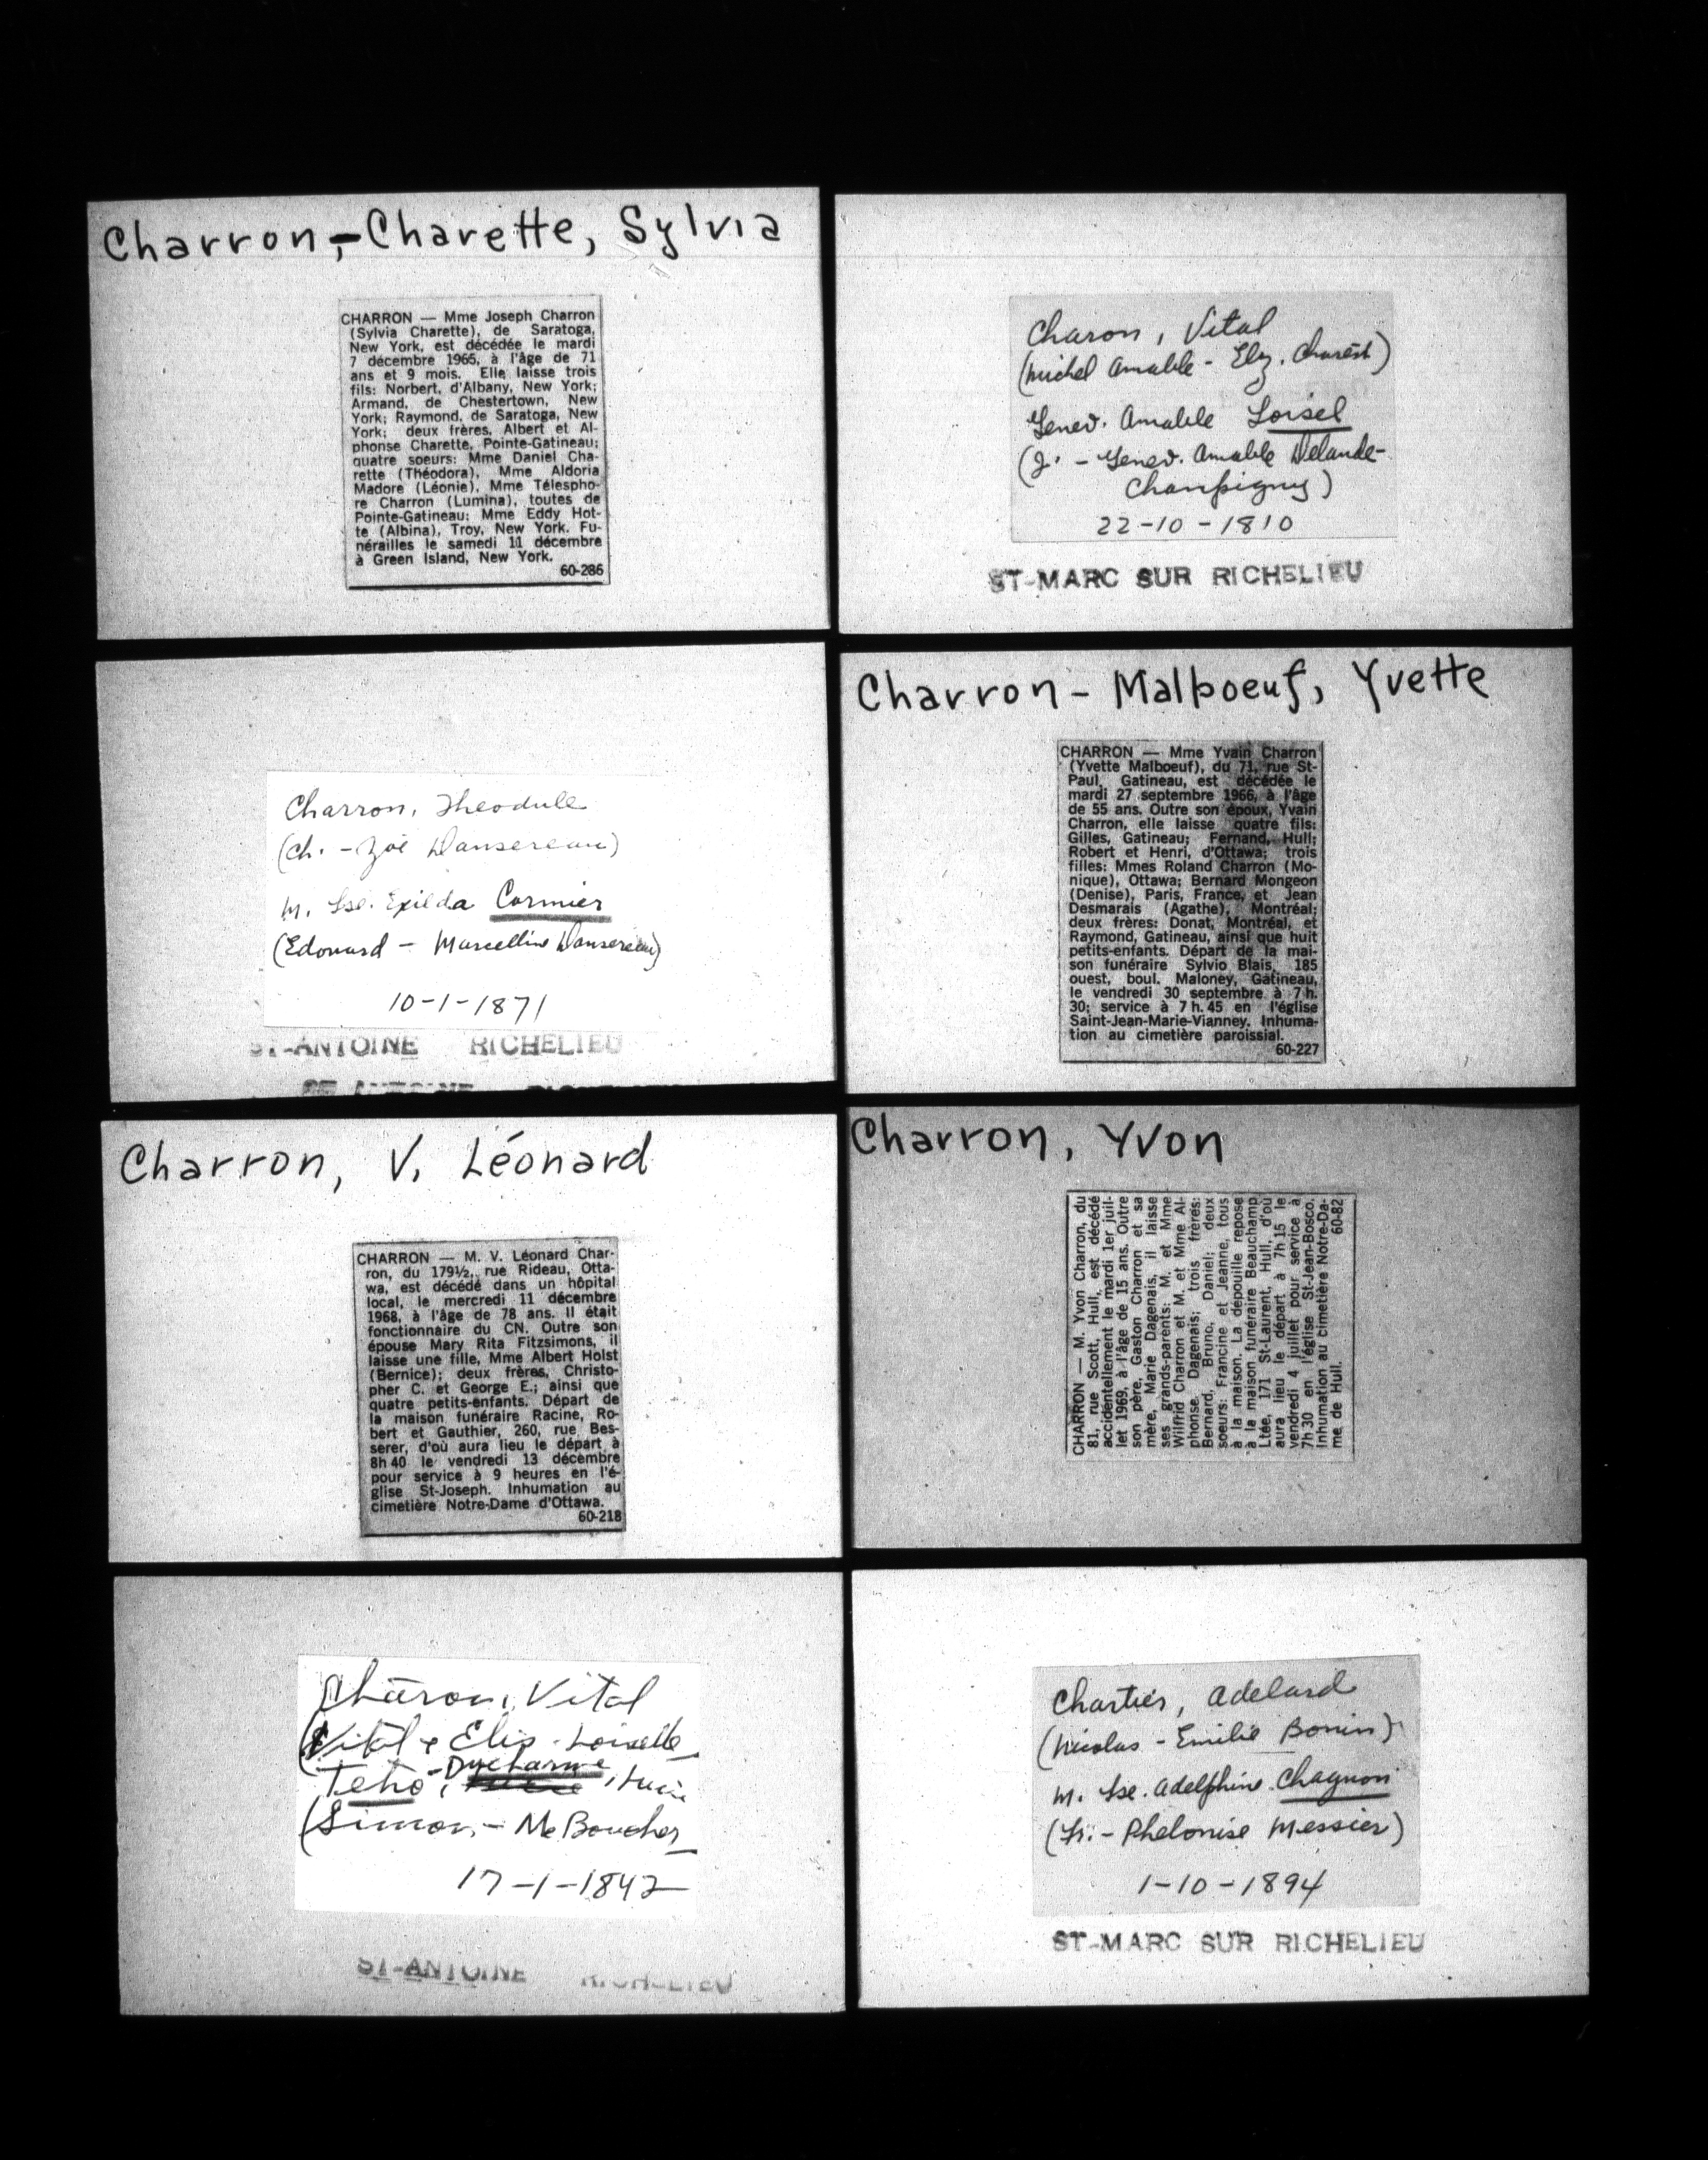 Charron,-Charette, Sylvia
CHARRON — Mme Joseph Charron
(Sylvia Charette), de Saratoga,
New York, est décédée le mardi
7 décembre 1965, à l'âge de 71
ans et 9 mois. Elle laisse trois
fils: Norbert, d'Albany, New York;
Armand, de Chestertown, New
York; Raymond, de Saratoga, New
York; deux frères, Albert et Al-
phonse Charette, Pointe-Gatineau;
quatre soeurs: Mme Daniel Cha-
rette (Théodora), Mme Aldoria
Madore (Léonie), Mme Télespho-
re Charron (Lumina), toutes de
Pointe-Gatineau; Mme Eddy Hot-
te (Albina), Troy, New York. Fu-
nérailles le samedi 11 décembre
à Green Island, New York.
60-286
Charon, Vital
(Michel Amable - Elz. Charest)
Genev. Amable Loisel
(J. - Genev. Amable Delande-
Champigny)
22-10-1810
ST-MARC SUR RICHELIEU
Charron, Theodule
(Ch. - Zoé Dansereau)
m. Lse. Exilda Cormier
(Edouard - Marcelline Dansereau)
10-1-1871
ST-ANTOINE RICHELIEU
ST-ANTOINE RICHELIEU
Charron - Malboeuf, Yvette
CHARRON — Mme Yvain Charron
(Yvette Malboeuf), du 71, rue St-
Paul, Gatineau, est décédée le
mardi 27 septembre 1966, à l'âge
de 55 ans. Outre son époux, Yvain
Charron, elle laisse quatre fils:
Gilles, Gatineau; Fernand, Hull;
Robert et Henri, d'Ottawa; trois
filles: Mmes Roland Charron (Mo-
nique), Ottawa; Bernard Mongeon
(Denise), Paris, France, et Jean
Desmarais (Agathe), Montréal;
deux frères: Donat, Montréal, et
Raymond, Gatineau, ainsi que huit
petits-enfants. Départ de la mai-
son funéraire Sylvio Blais, 185
ouest, boul. Maloney, Gatineau,
le vendredi 30 septembre à 7 h.
30; service à 7 h. 45 en l'église
Saint-Jean-Marie-Vianney. Inhuma-
tion au cimetière paroissial.
60-227
Charron, V. Léonard
CHARRON — M. V. Léonard Char-
ron, du 179½, rue Rideau, Otta-
wa, est décédé dans un hôpital
local, le mercredi 11 décembre
1968, à l'âge de 78 ans. Il était
fonctionnaire du CN. Outre son
épouse Mary Rita Fitzsimons, il
laisse une fille, Mme Albert Holst
(Bernice); deux frères, Christo-
pher C. et George E.; ainsi que
quatre petits-enfants. Départ de
la maison funéraire Racine, Ro-
bert et Gauthier, 260, rue Bes-
serer, d'où aura lieu le départ à
8h 40 le vendredi 13 décembre
pour service à 9 heures en l'é-
glise St-Joseph. Inhumation au
cimetière Notre-Dame d'Ottawa.
60-218
Charron, Yvon
CHARRON — M. Yvon Charron, du
81, rue Scott, Hull, est décédé
accidentellement le mardi 1er juil-
let 1969, à l'âge de 15 ans. Outre
son père, Gaston Charron et sa
mère, Marie Dagenais, il laisse
ses grands-parents: M. et Mme
Wilfrid Charron et M. et Mme Al-
phonse Dagenais; trois frères:
Bernard, Bruno, Daniel; deux
soeurs: Francine et Jeanne, tous
à la maison. La dépouille repose
à la maison funéraire Beauchamp
Ltée, 171 St-Laurent, Hull, d'où
aura lieu le départ à 7h 15 le
vendredi 4 juillet pour service à
7h 30 en l'église St-Jean-Bosco.
Inhumation au cimetière Notre-Da-
me de Hull. 60-82
Charon, Vital
(Vital & Elis. Loiselle
Teho-Ducharme, Lucie
(Simon - Me Boucher
17-1-1842
ST-ANTOINE RICHELIEU
Chartier, Adelard
(Nicolas - Emilie Bonin)
m. Lse. Adelphine Chagnon
(Fr. - Phelonise Messier)
1-10-1894
ST-MARC SUR RICHELIEU